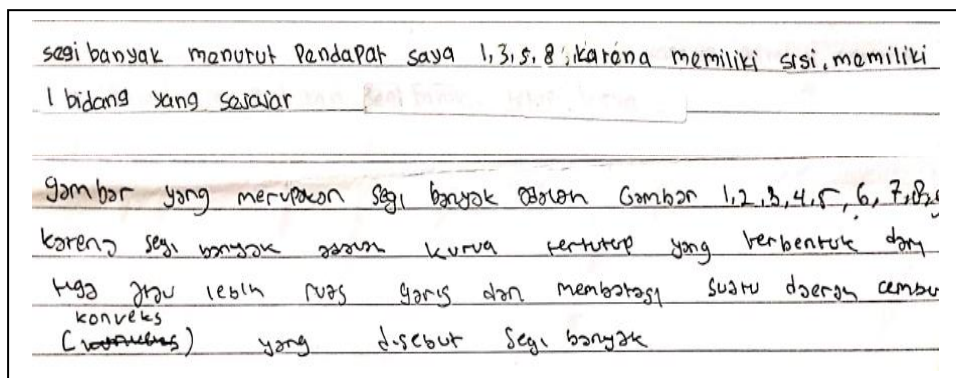 segi banyak menurut Pendapat saya 1,3,5,8, karena memiliki sisi, memiliki
1 bidang yang sejajar
gambar yang merupakan segi banyak adalah Gambar 1,2,3,4,5,6,7,8,
karena segi banyak adalah kurva tertutup yang terbentuk dari
tiga atau lebih ruas garis dan membatasi suatu daerah cembu
konveks
( ) yang disebut segi banyak